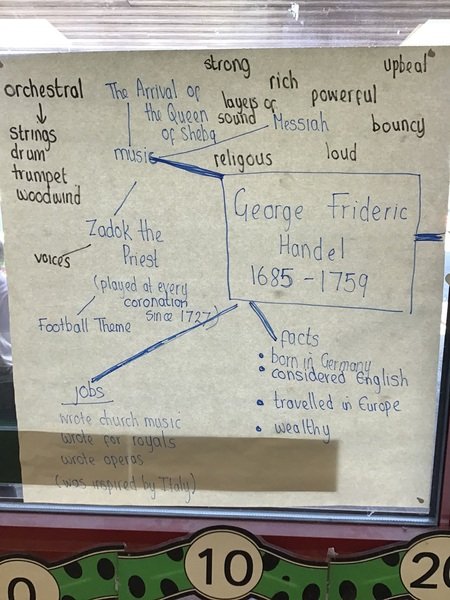 strong
rich
upbeat
orchestral
The Arrival of
the Queen
of Sheba
layers of
sound
powerful
Messiah
bouncy
strings
drum
trumpet
woodwind
music
religous
loud
George Frideric
Handel
1685 - 1759
Zadok the
Priest
voices
(played at every
coronation
since 1727)
Football Theme
facts
• born in Germany
• considered English
• travelled in Europe
• wealthy
jobs
wrote church music
wrote for royals
wrote operas
(was inspired by Italy)
0
10
20